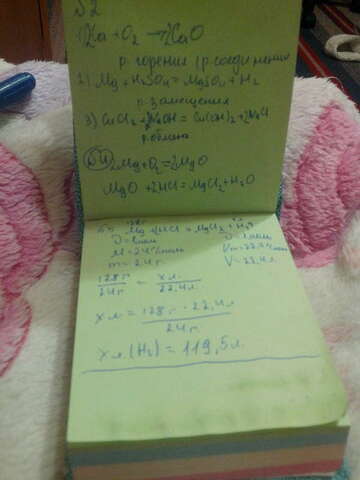 №2
1) 2Ca + O₂ → 2CaO
р. горения (р. соединения)
2) Mg + H₂SO₄ = MgSO₄ + H₂
р. замещения
3) CuCl₂ + 2NaOH = Cu(OH)₂ + 2NaCl
р. обмена
№4 2Mg + O₂ = 2MgO
MgO + 2HCl = MgCl₂ + H₂O
Mg + 2HCl = MgCl₂ + H₂
ν = 1 моль ν = 1 моль
M = 24 г/моль Vm = 22,4 л/моль
m = 24 г V = 22,4 л
128 г / 24 г = x л / 22,4 л
x л = 128 г · 22,4 л / 24 г
x л (H₂) = 119,5 л